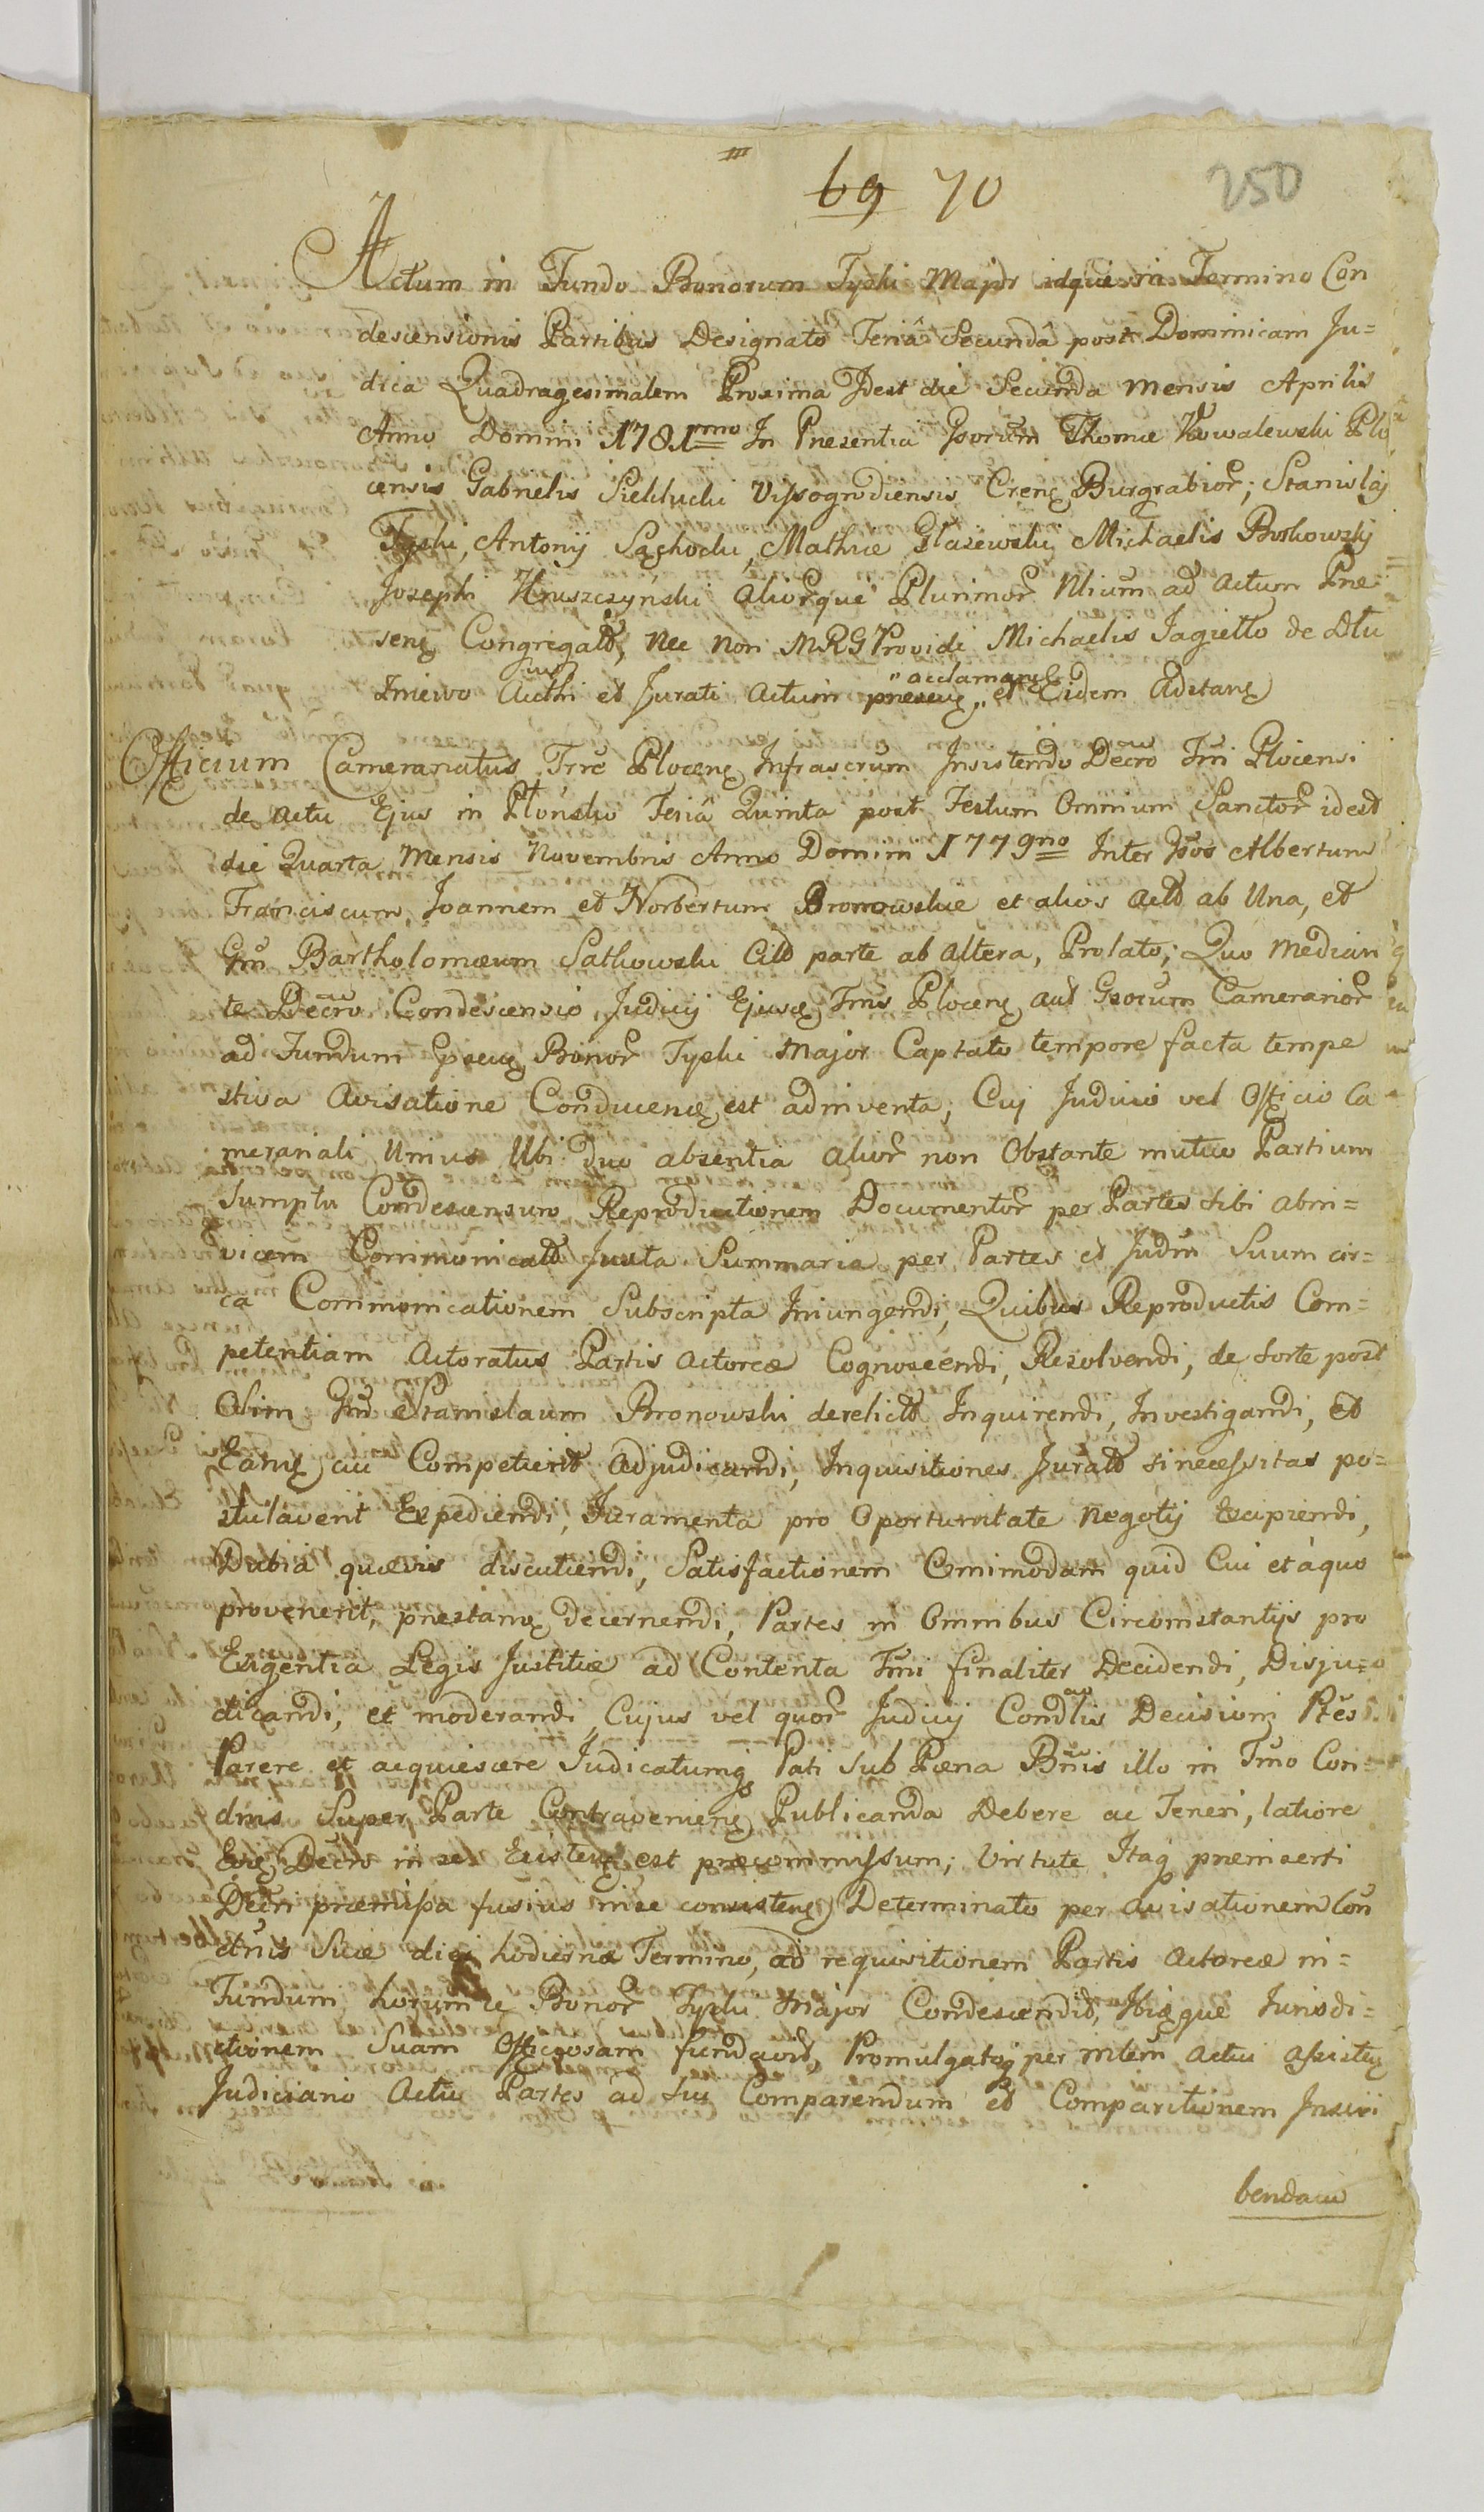 69 70 250
Actum in Fundo Bonorum Tyski Major idque in Termino Con
descensionis Partibus Designato Feriâ Secundâ post Dominicam Ju=
dica Quadragesimalem Proxima Idest die Secunda Mensis Aprilis
Anno Domini 1781mo In Presentia Gsorum Thomæ Kowalewski Plo
censis Gabrielis Sieklucki Vissogrodiensis Burgrabior; Stanislaj
Tyski, Antonij Mathiæ Glazewski Michaelis
Josephi Kruszczynski aliorque Plurimor Nlium ad actum Pre
sen Congregatt, Nec Non MRG Providi Michaelis Jagiello de Dlu
Authi et Jurati actum presen et Eidem Adstan
acclaman
Officium Cameranatus Trrć Plocen Infrascrum Insistendo Decro Tmi Plocensi
de actu Ejus in Płonsko Feriâ Quinta post Festum Omnium Sanctor idest
die Quarta Mensis Novembris Anno Domini 1779no Inter Gsos Albertum
Franciscum, Joannem et Norbertum Bronowskie et alios actt ab Una, et
Gm Bartholomæum Satkowski Citt parte ab altera, Prolato; Quo median
te Decro Condescensio Judicij Ejus Tmis Plocen aut Gsorum Camerarior
ad Fundum Bonor Tyski Major Captato tempore facta tempe
stiva avisatione Conducen est adinventa; Cuj Judicio vel Officio Ca
merariali Unius Ubi duo absentia alior non Obstante mutuo Partium
Sumptu Condescensuro Reproductionem Documentor per Partes sibi abin=
vicem Communicatt Juxta Summaria per Partes et Judm Suum cir=
ca Communicationem Subscripta Iniungendi, Quibus Reproductis Com=
petentiam Actoratus Partis Actoreæ Cognoscendi, Resolvendi, de sorte post
Olim Gm Stanislaum Bronowski derelictt Inquirendi, Investigandi, et
Ean cui Competierit adjudicandi, Inquisitiones Juratt si necessitas po=
stulaverit Expediendi, Juramenta pro Oportunitate Negotij Excipiendi,
Dubia quævis discutiendi, Satisfactionem Omnimodam quid Cui et à quo
provenerit, prestan decernendi, Partes in Omnibus Circumstantijs pro
Exigentia Legis Justitiæ ad Contenta Tmi finaliter Decidendi, Disju=
dicandi, et moderandi, Cujus vel quor Judicij Condlis Decisioni Ptes
Parere et acquiescere Judicatumq Pati Sub Pæna Bnis illo in Tmo Con=
dnis Super Parte Contravenien Publicanda Debere ac Teneri, latiore
Decro in se Existen est præcommissum; Virtute Itaq preinserti
Decri præmissa fusius in se consisten Determinato per avisationem Con
dnis Suæ diei hodiernæ Termino, ad requisitionem Partis Actoreæ in=
Fundum horumce Bonor Tyski Major Condescendit, Ibiq que Jurisdi=
ctionem Suam Officiosam fundavit, Promulgatoq per mtem actui assisten
Judiciario Actu Partes ad sui Comparendum et Comparitionem Inscri
bendam